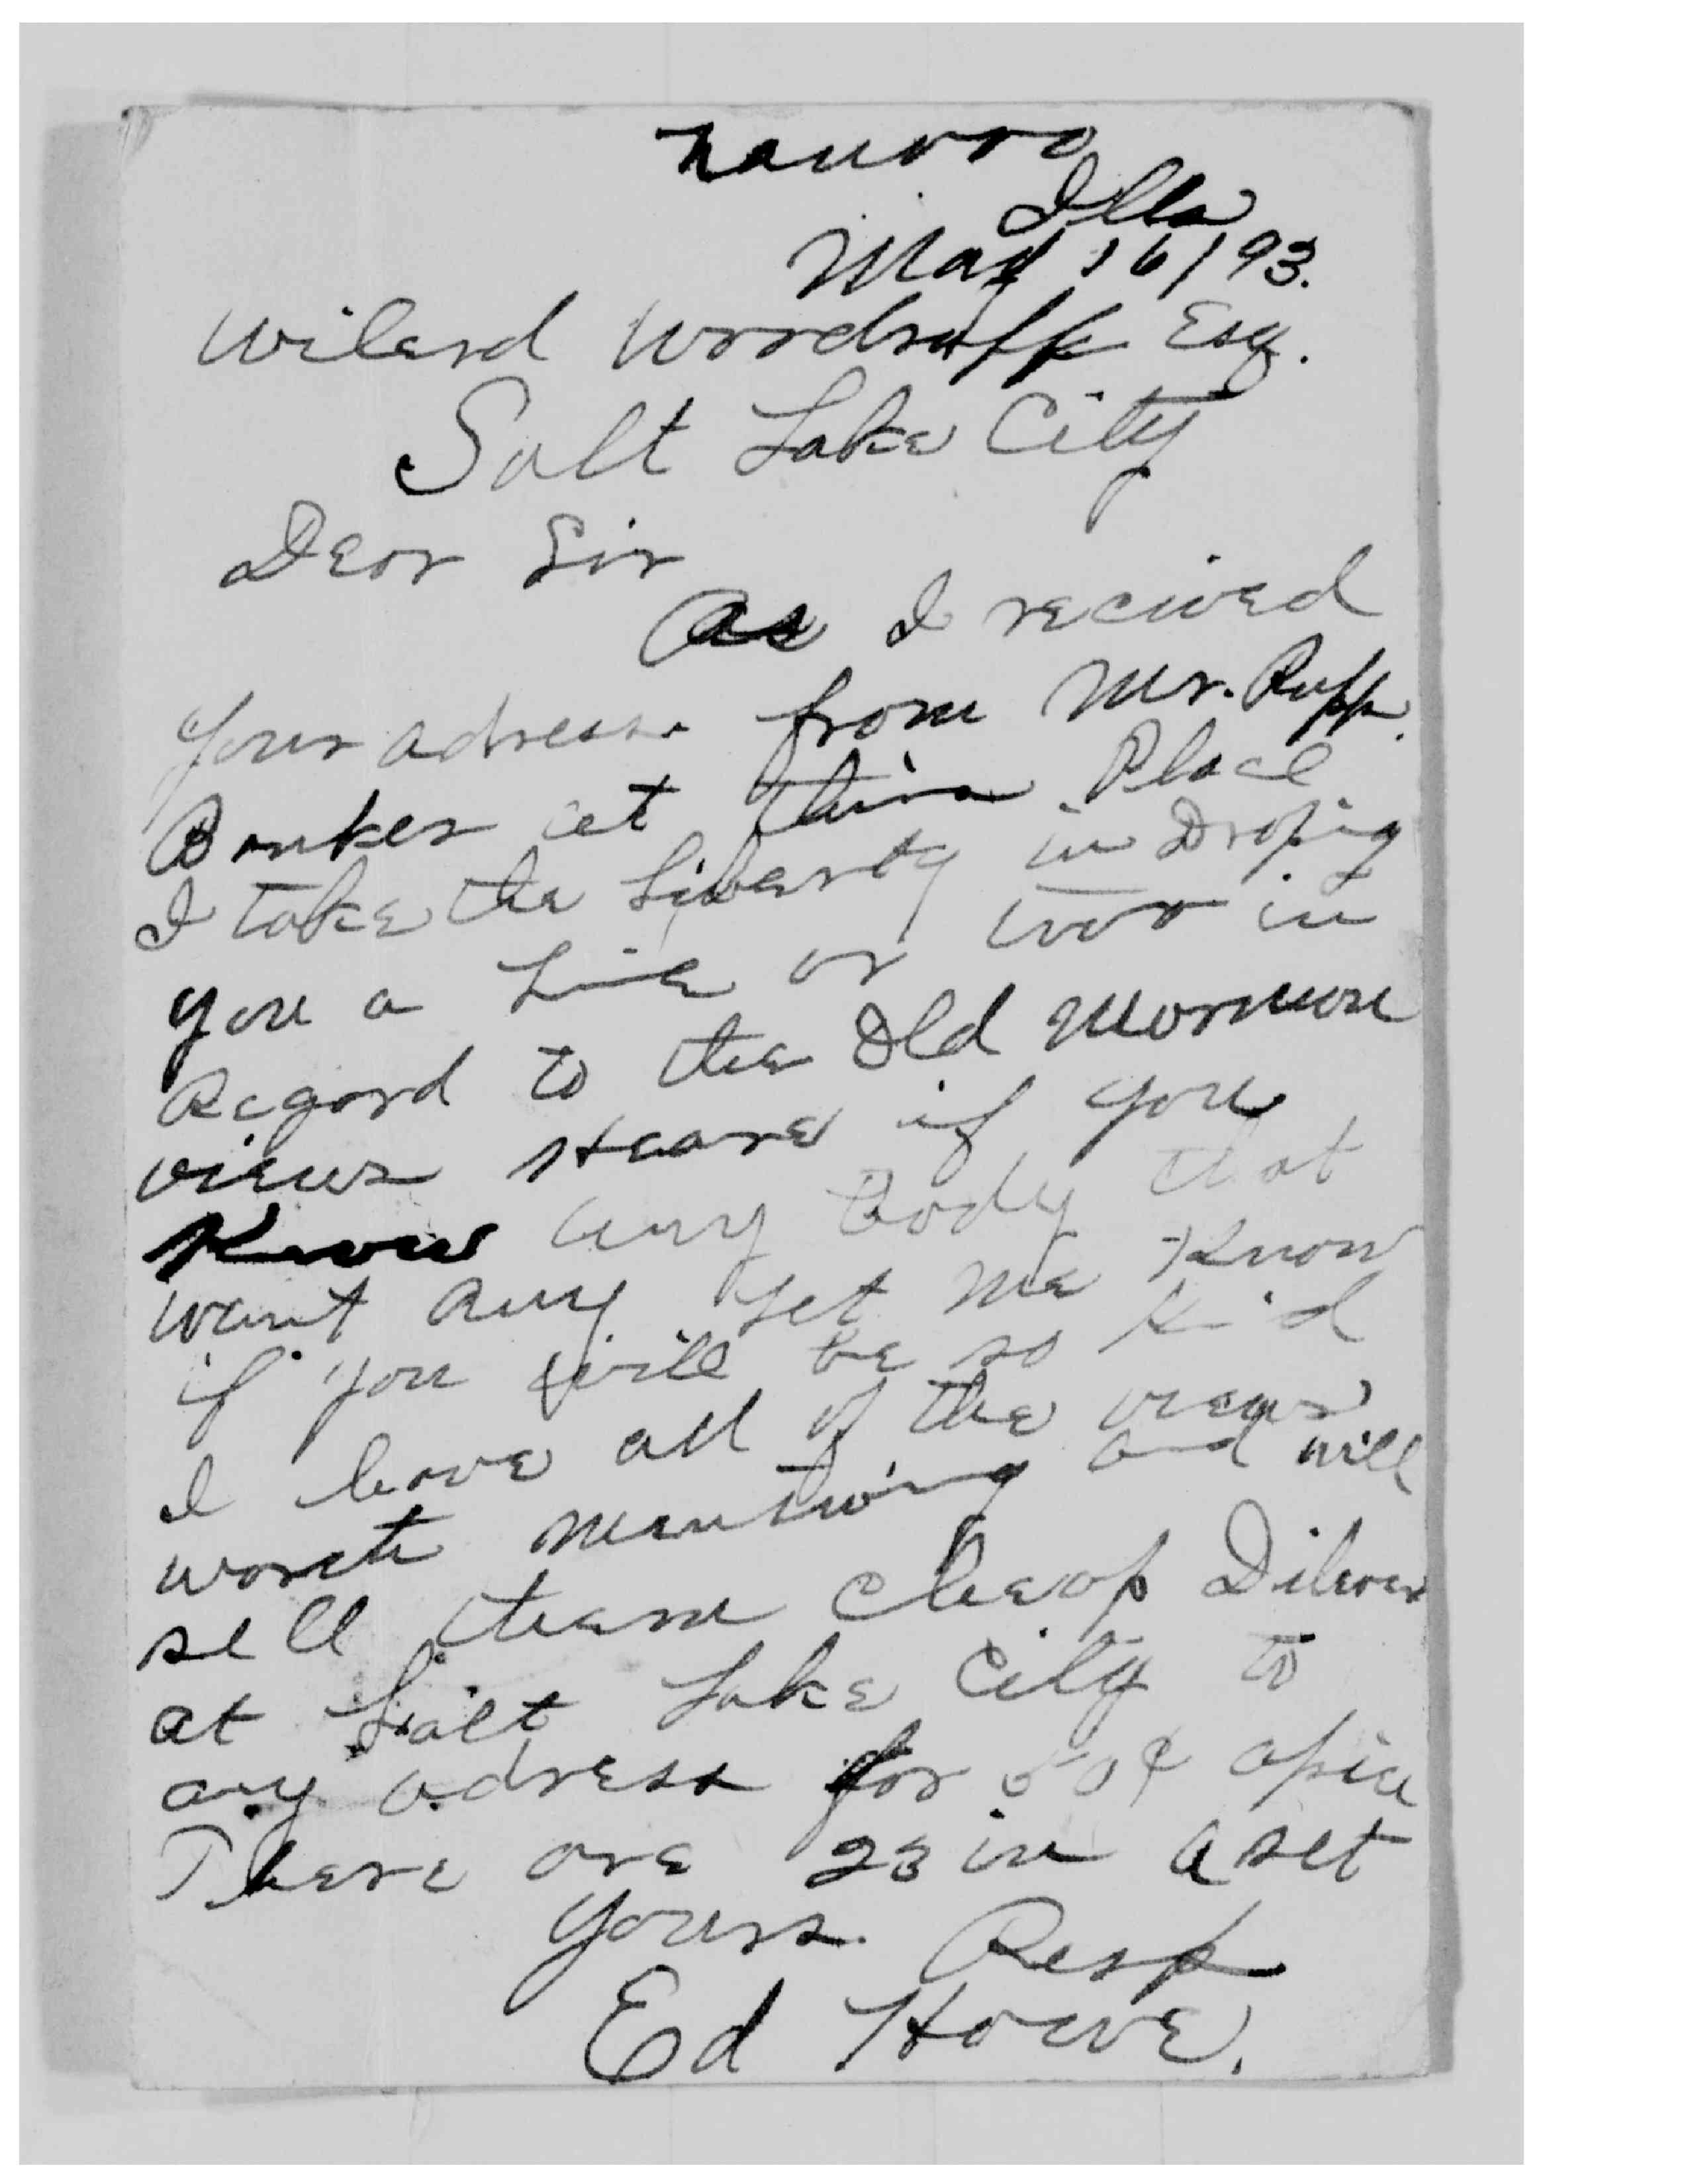 Nauvoo
Ills
May 16/93.
Wilard Woodruff Esq.
Salt Lake City
Dear Sir
As I recived
your adress from Mr. Rupp.
Banker at this Place
I take the Liberty in Droping
you a Line or two in
Regard to the Old Mormon
views Heare if you
Know any Body that
want any Let me Know
if you will be so Kid
I have all of the views
worth mentiong and will
sell them cheap Dilever
at Salt Lake City to
any adress for 50¢ apice
There are 23 in a set
yours. Resp
Ed Howe.